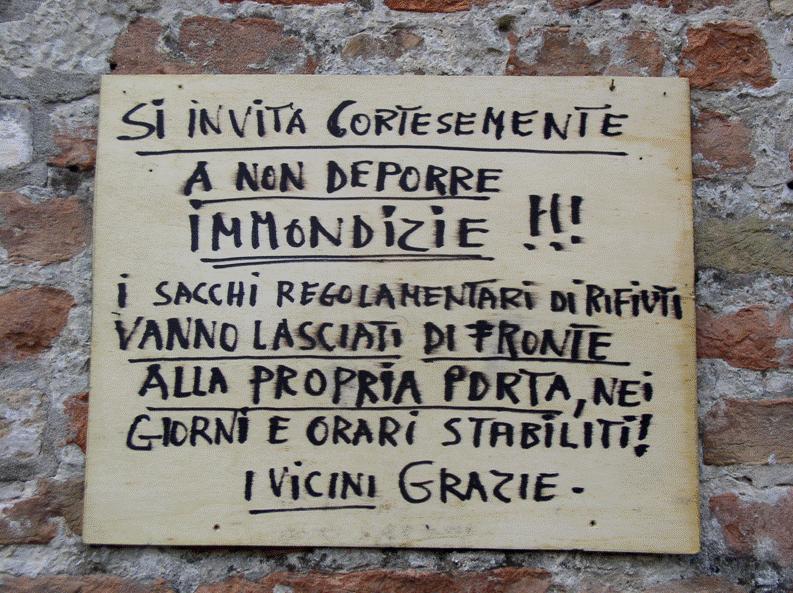 Si INVITA CORTESEMENTE
A NON DEPORRE
IMMONDIZIE !!!
i SACCHI REGOLAMENTARI DI RIFIUTI
VANNO LASCIATI DI FRONTE
ALLA PROPRIA PORTA, NEI
GIORNI E ORARI STABILITI!
I VICINI GRAZIE.